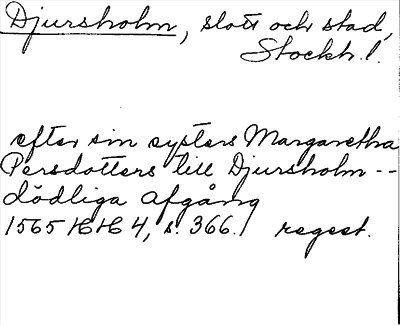 Djursholm, slott och stad,
Stockh. l.
efter sin systers Margaretha
Persdotters till Djursholm --
dödliga afgång
1565 HH 4, s. 366. regest.